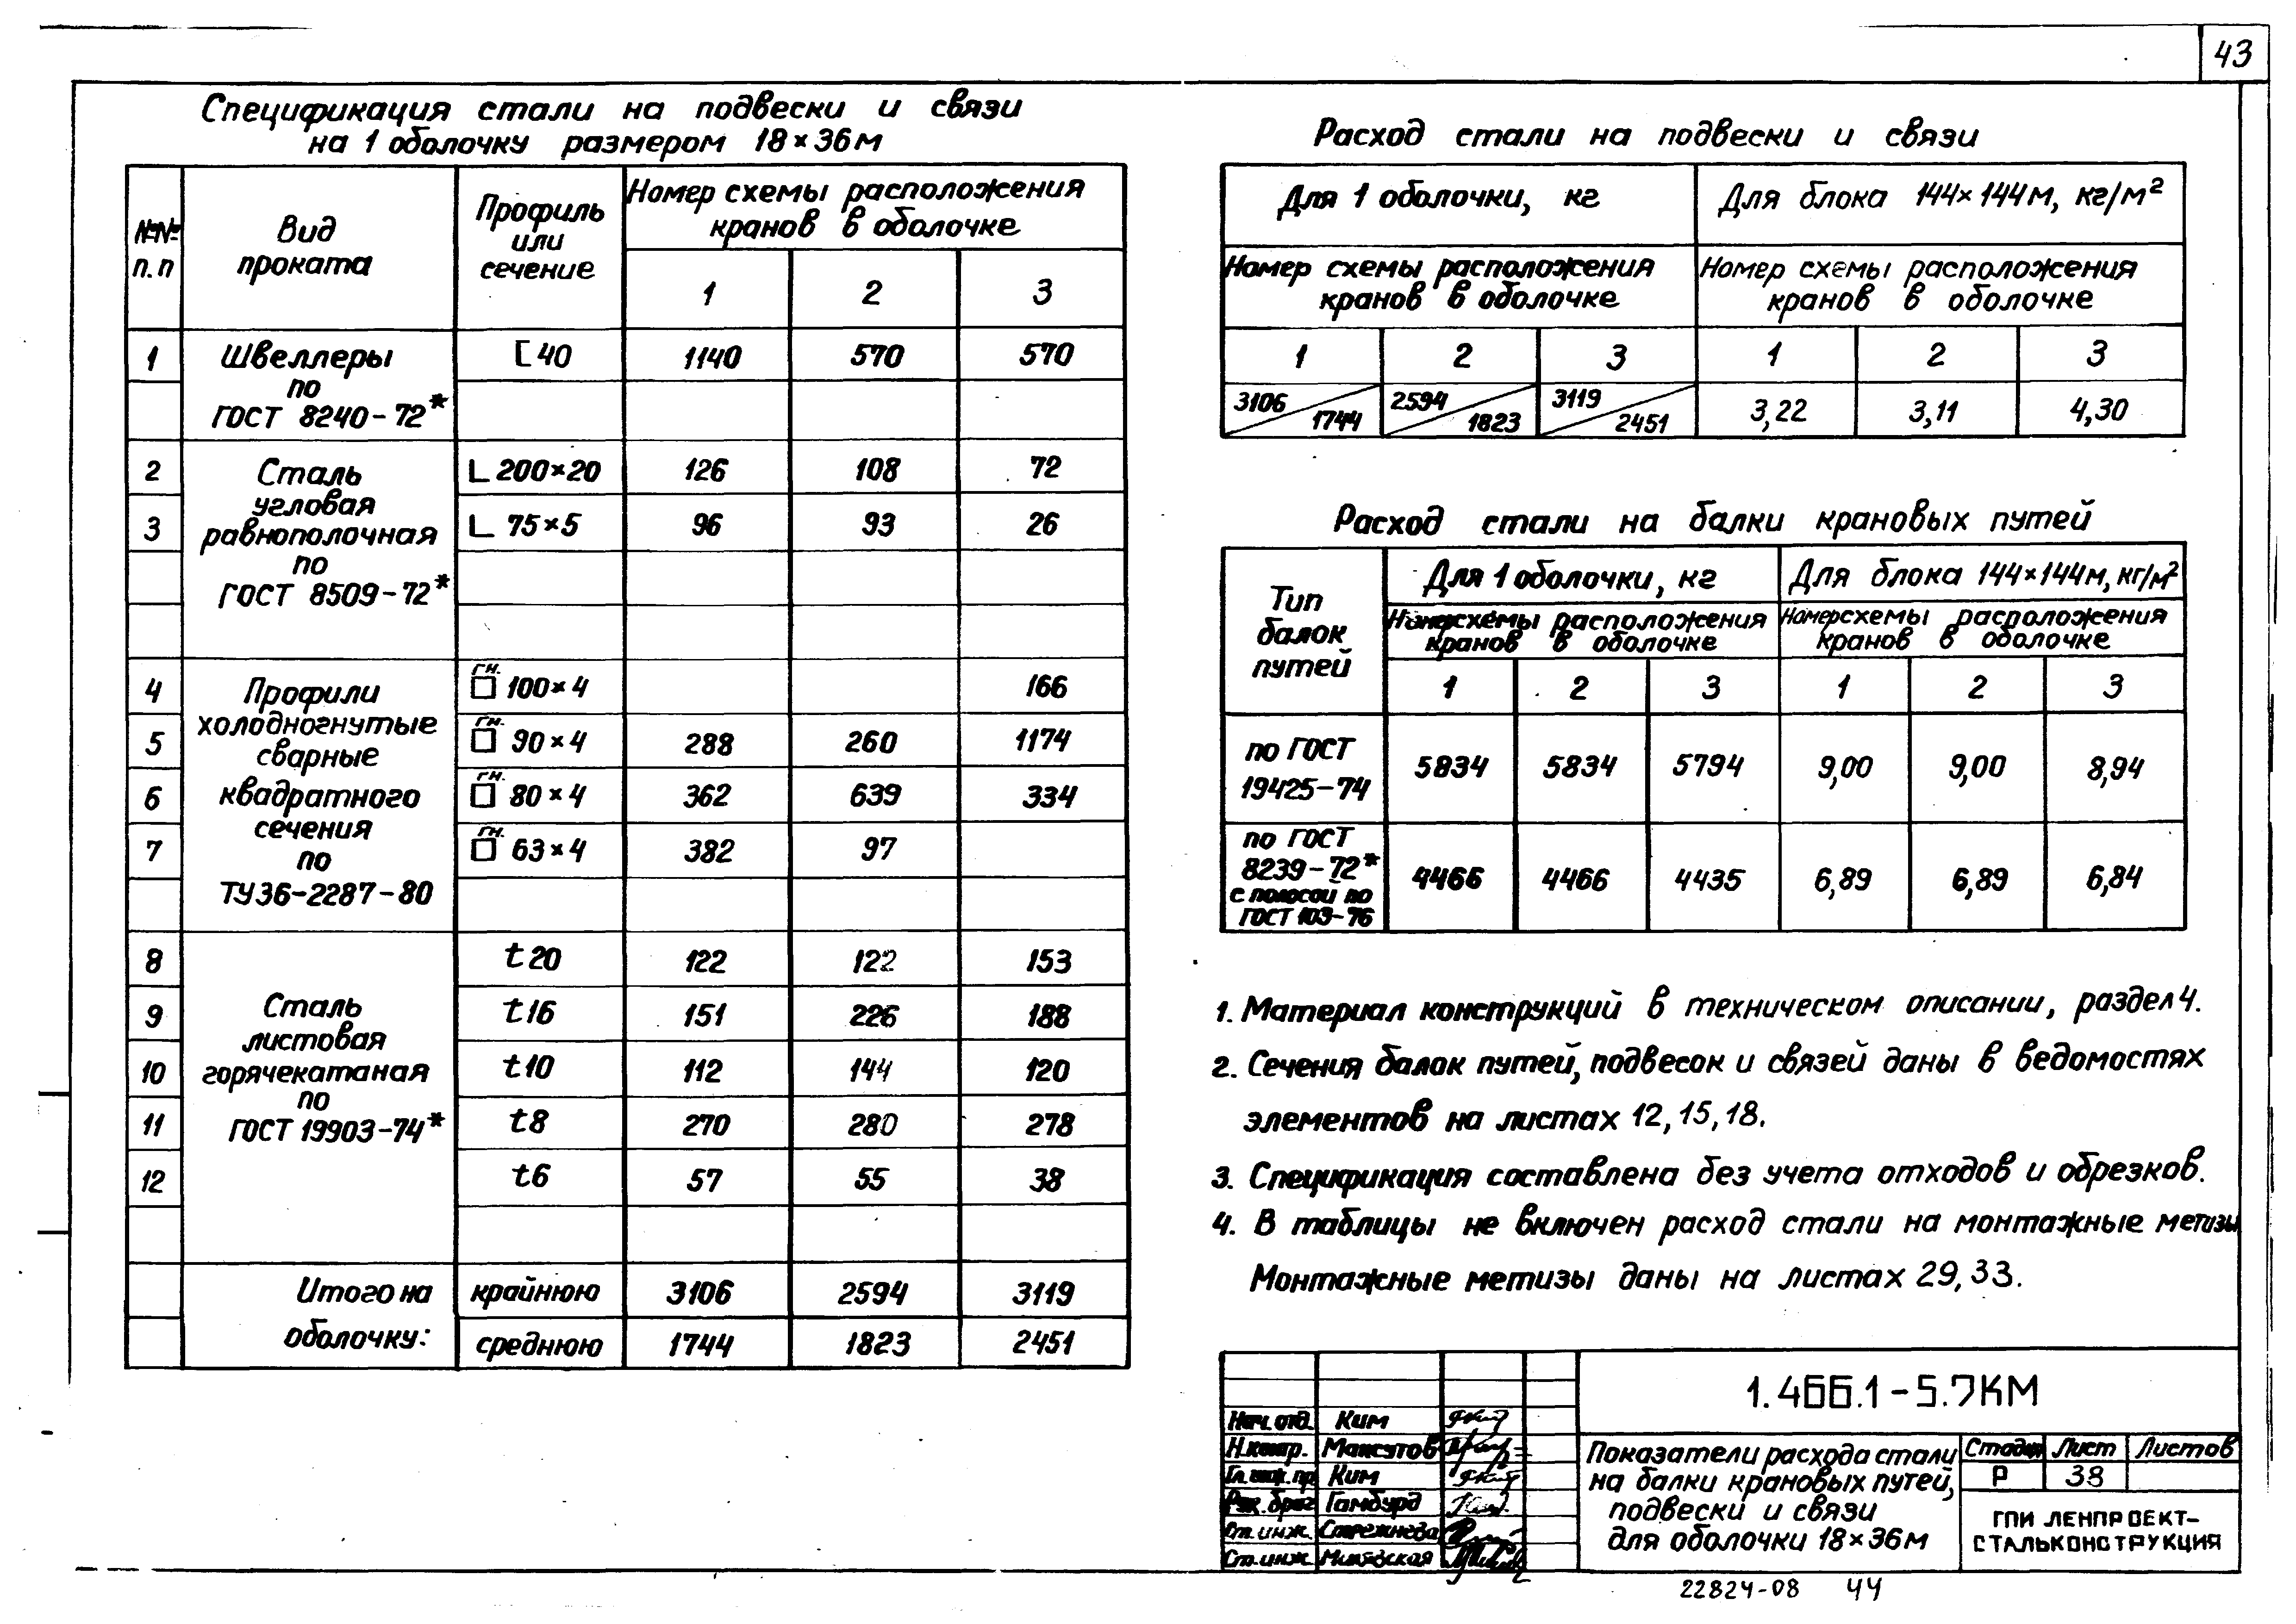 43
Спецификация стали на подвески и связи
на 1 оболочку размером 18×36м
№№ п.п
Вид проката
Профиль или сечение
Номер схемы расположения кранов в оболочке
1 2 3
1 Швеллеры по ГОСТ 8240-72* [40 1140 570 570
2 Сталь угловая равнополочная по ГОСТ 8509-72* L 200×20 126 108 72
3 L 75×5 96 93 26
4 Профили холодногнутые сварные квадратного сечения по ТУ36-2287-80 гн. □ 100×4 166
5 гн. □ 90×4 288 260 1174
6 гн. □ 80×4 362 639 334
7 гн. □ 63×4 382 97
8 Сталь листовая горячекатаная по ГОСТ 19903-74* t20 122 122 153
9 t16 151 226 188
10 t10 112 144 120
11 t8 270 280 278
12 t6 57 55 38
Итого на оболочку: крайнюю 3106 2594 3119
среднюю 1744 1823 2451
Расход стали на подвески и связи
Для 1 оболочки, кг Для блока 144×144м, кг/м²
Номер схемы расположения кранов в оболочке Номер схемы расположения кранов в оболочке
1 2 3 1 2 3
3106/1744 2594/1823 3119/2451 3,22 3,11 4,30
Расход стали на балки крановых путей
Тип балок путей
Для 1 оболочки, кг Для блока 144×144м, кг/м²
Номер схемы расположения кранов в оболочке Номер схемы расположения кранов в оболочке
1 2 3 1 2 3
по ГОСТ 19425-74 5834 5834 5794 9,00 9,00 8,94
по ГОСТ 8239-72* с полосой по ГОСТ 103-76 4466 4466 4435 6,89 6,89 6,84
1. Материал конструкций в техническом описании, раздел 4.
2. Сечения балок путей, подвесок и связей даны в ведомостях
элементов на листах 12, 15, 18.
3. Спецификация составлена без учета отходов и обрезков.
4. В таблицы не включен расход стали на монтажные метизы
Монтажные метизы даны на листах 29, 33.
Нач. отд. Ким
Н.контр. Максутов
Гл. инж. пр. Ким
Рук. бриг Гамбурд
Ст. инж. Стрежнева
Ст. инж
1.466.1-5.7КМ
Показатели расхода стали
на балки крановых путей,
подвески и связи
для оболочки 18×36м
Стадия Лист Листов
Р 38
ГПИ ЛЕНПРОЕКТ-
СТАЛЬКОНСТРУКЦИЯ
22824-08 44